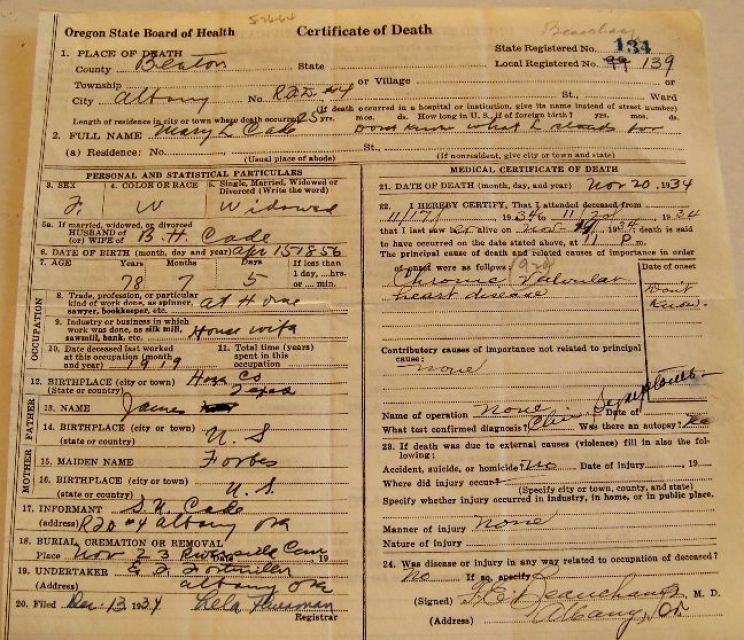 Oregon State Board of Health
57664
Certificate of Death
Beauchamp
State Registered No. 134
Local Registered No. 99 139
1. PLACE OF DEATH
County Benton State
Township or Village or
City Albany No. R.F.D. #4 St., Ward
(If death occurred in a hospital or institution, give its name instead of street number)
Length of residence in city or town where death occurred 25 yrs. mos. ds. How long in U. S., if of foreign birth? yrs. mos. ds.
2. FULL NAME Mary L Cade Dont know what L stands for
(a) Residence: No. St.,
(Usual place of abode) (If nonresident, give city or town and state)
PERSONAL AND STATISTICAL PARTICULARS
3. SEX 4. COLOR OR RACE 5. Single, Married, Widowed or Divorced (Write the word)
F. W Widowed
5a. If married, widowed, or divorced
HUSBAND of
(or) WIFE of B. H. Cade
6. DATE OF BIRTH (month, day, and year) Apr 15 1856
7. AGE Years Months Days If less than
1 day, ...hrs.
or .... min.
78 7 5
OCCUPATION
8. Trade, profession, or particular
kind of work done, as spinner,
sawyer, bookkeeper, etc. at Home
9. Industry or business in which
work was done, as silk mill,
sawmill, bank, etc. House wife
10. Date deceased last worked
at this occupation (month
and year) 1919
11. Total time (years)
spent in this
occupation
12. BIRTHPLACE (city or town) Co
(State or country) Texas
FATHER
13. NAME James
14. BIRTHPLACE (city or town)
(state or country) U. S
MOTHER
15. MAIDEN NAME Forbes
16. BIRTHPLACE (city or town)
(state or country) U. S.
17. INFORMANT S. N. Cade
(address) R.F.D #4 Albany Ore
18. BURIAL, CREMATION OR REMOVAL
Place Nov 23 Riverside Cem 19
19. UNDERTAKER E F Fortmiller
(Address) Albany Ore
20. Filed Dec. 13 1934 Lela
Registrar
MEDICAL CERTIFICATE OF DEATH
21. DATE OF DEATH (month, day, and year) Nov 20 1934
22. I HEREBY CERTIFY, That I attended deceased from
11/17/ 1934 to 11/20/ 1934
that I last saw er alive on Nov 19 1934, death is said
to have occurred on the date stated above, at 11 P. m.
The principal cause of death and related causes of importance in order
of onset were as follows: 92
Chronic Valvular
heart disease
Date of onset
Don't
Know.
Contributory causes of importance not related to principal
cause:
none
Name of operation none Date of
What test confirmed diagnosis? Clin Symptoms Was there an autopsy? no
23. If death was due to external causes (violence) fill in also the fol-
lowing:
Accident, suicide, or homicide? No Date of injury 19
Where did injury occur?
(Specify city or town, county, and state)
Specify whether injury occurred in industry, in home, or in public place.
Manner of injury None
Nature of injury
24. Was disease or injury in any way related to occupation of deceased?
No If so, specify
(Signed) Beauchamp M. D.
(Address) Albany, Or